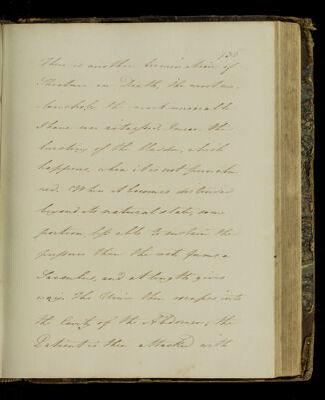 135
There is another termination of
Stricture in Death, the most me-
-lancholy the most miserable
I have ever witnessed. I mean the
bursting of the Bladder, which
happens, when it is not punctu
red. When it becomes distended
beyond its natural state, some
portion less able to sustain the
pressure than the rest forms a
Sacculus, and at length gives
way. The Urine then escapes into
the Cavity of the Abdomen, the
Patient is then attacked with